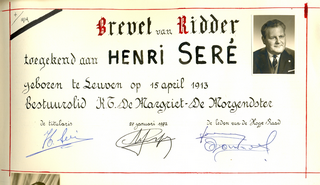 Brevet van Ridder
toegekend aan HENRI SERÉ
geboren te Leuven op 15 april 1913
Bestuurslid K.T. De Margriet - De Morgendster
de titularis 22 januari 1972 de leden van de Hoge Raad